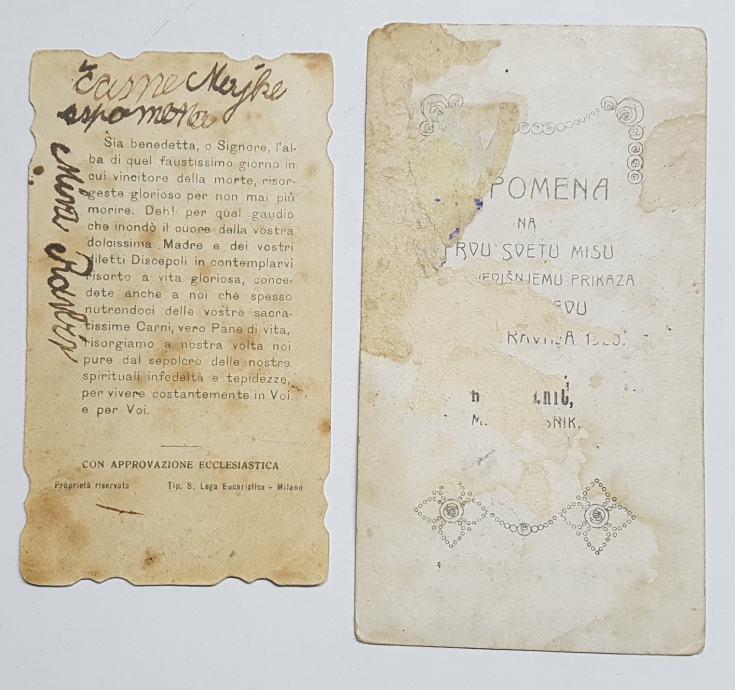 časne Majke
uspomena
Sia benedetta, o Signore, l'al-
ba di quel faustissimo giorno in
cui vincitore della morte, risor-
geste glorioso per non mai più
morire. Deh! per quel gaudio
che inondò il cuore della vostra
dolcissima Madre e dei vostri
diletti Discepoli in contemplarvi
risorto a vita gloriosa, conce-
dete anche a noi chè spesso
nutrendoci delle vostre sacra-
tissime Carni, vero Pane di vita,
risorgiamo a nostra volta noi
pure dal sepolcro delle nostre
spirituali infedeltà e tepidezze,
per vivere costantemente in Voi
e per Voi.
CON APPROVAZIONE ECCLESIASTICA
Proprietà riservata Tip. S. Lega Eucaristica - Milano
POMENA
NA
RVU SVETU MISU
EDIŠNJEMU PRIKAZA
EVU